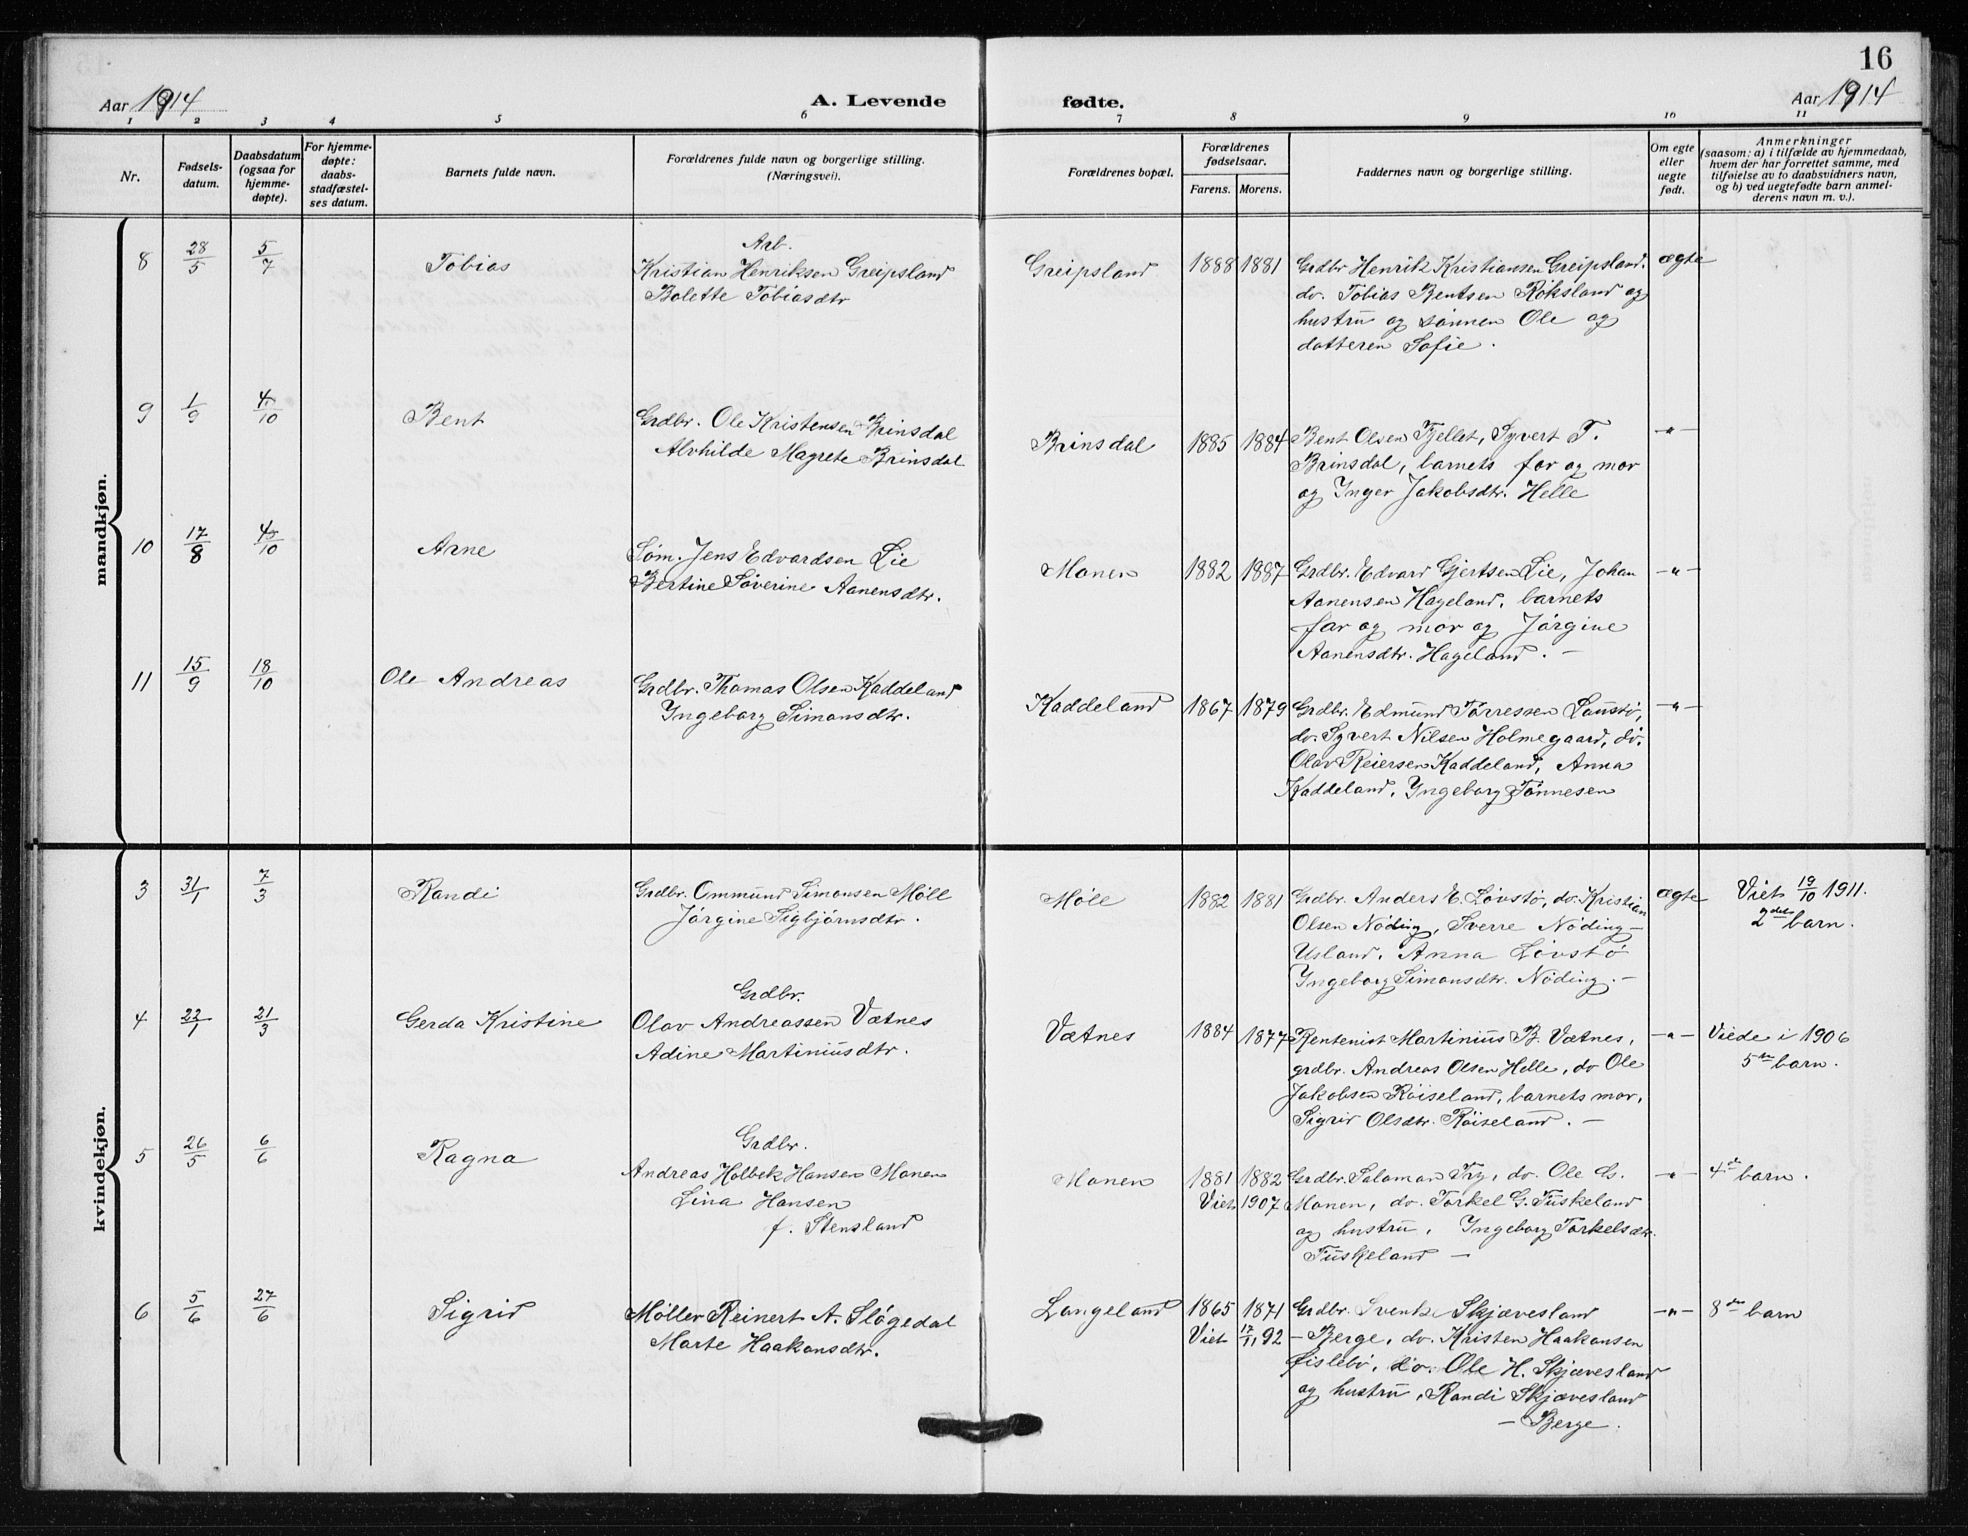 16
Aar 1914
A. Levende fødte.
Aar 1914
1 2 3 4 5 6 7 8 9 10 11
Nr.
Fødsels-
datum.
Daabsdatum
(ogsaa for
hjemme-
døpte).
For hjemme-
døpte:
daabs-
stadfæstel-
ses datum.
Barnets fulde navn.
Forældrenes fulde navn og borgerlige stilling.
(Næringsvei).
Forældrenes bopæl.
Forældrenes
fødselsaar.
Farens. Morens.
Faddernes navn og borgerlige stilling.
Om egte
eller
uegte
født.
Anmerkninger
(saasom: a) i tilfælde av hjemmedaab,
hvem der har forrettet samme, med
tilføielse av to daabsvidners navn,
og b) ved uegtefødte barn anmel-
derens navn m. v.).
mandkjøn.
8 28/5 5/7 Tobias
Arb.
Kristian Henriksen Greipsland
Bolette Tobiasdtr
Greipsland 1888 1881
Grdbr Henrik Kristiansen Greipsland.
do. Tobias Bentsen Röksland og
hustru og sönnen Ole og
datteren Sofie.
ægte
9 1/9 4/10 Bent
Grdbr. Ole Kristensen Brinsdal
Alvhilde Magrete Brinsdal
Brinsdal 1885 1884
Bent Olsen Fjellet, Syvert T.
Brinsdal, barnets far og mor
og Inger Jakobsdtr. Helle
-"-
10 17/8 4/10 Arne
Søm. Jens Edvardsen Lie
Bertine Severine Aanensdtr.
Monen 1882 1887
Grdbr. Edvard Gjertsen Lie, Johan
Aanensen Hageland, barnets
far og mor og Jörgine
Aanensdtr. Hageland. -
-"-
11 15/9 18/10 Ole Andreas
Grdbr. Thomas Olsen Kaddeland
Ingeborg Simonsdtr.
Kaddeland 1867 1879
Grdbr. Edmund Torressen Laustö,
do. Syvert Nilsen Holmegaard, do.
Olav Reiersen Kaddeland, Anna
Kaddeland, Ingeborg Tönnesen
-"-
kvindekjøn.
3 31/1 7/3 Randi
Grdbr. Ommund Simonsen Möll
Jörgine Sigbjörnsdtr.
Möll 1882 1881
Grdbr. Anders E. Lövstö, do. Kristian
Olsen Nöding, Sverre Nöding -
Usland, Anna Lövstö
Ingeborg Simonsdtr. Nöding. -
ægte
Viet 19/10 1911.
2det barn.
4 22/1 21/3 Gerda Kristine
Grdbr.
Olav Andreassen Vætnes
Adine Martiniusdtr.
Vætnes 1884 1877
Rentenist Martinius B. Vætnes,
grdbr. Andreas Olsen Helle, do Ole
Jakobsen Röiseland, barnets mor,
Sigrid Olsdtr. Röiseland. -
-"-
Viede i 1906
5te barn.
5 26/5 6/6 Ragna
Grdbr.
Andreas Holbek Hansen Monen
Lina Hansen
f. Stensland
Monen 1881 1882
Viet 1907
Grdbr. Salomon Try, do. Ole G.
Monen, do. Torkel G. Fuskeland
og hustru, Ingeborg Torkelsdtr.
Fuskeland -
-"-
4de barn.
6 5/6 27/6 Sigrid
Møller Reinert A. Sløgedal
Marte Haakonsdtr.
Langeland 1865 1871
Viet 17/11 92
Grdbr. Svent. Skjævesland
- Berge, do. Kristen Haakonsen
Øislebö, do. Ole H. Skjævesland
og hustru, Randi Skjævesland
- Berge.
-"-
8de barn